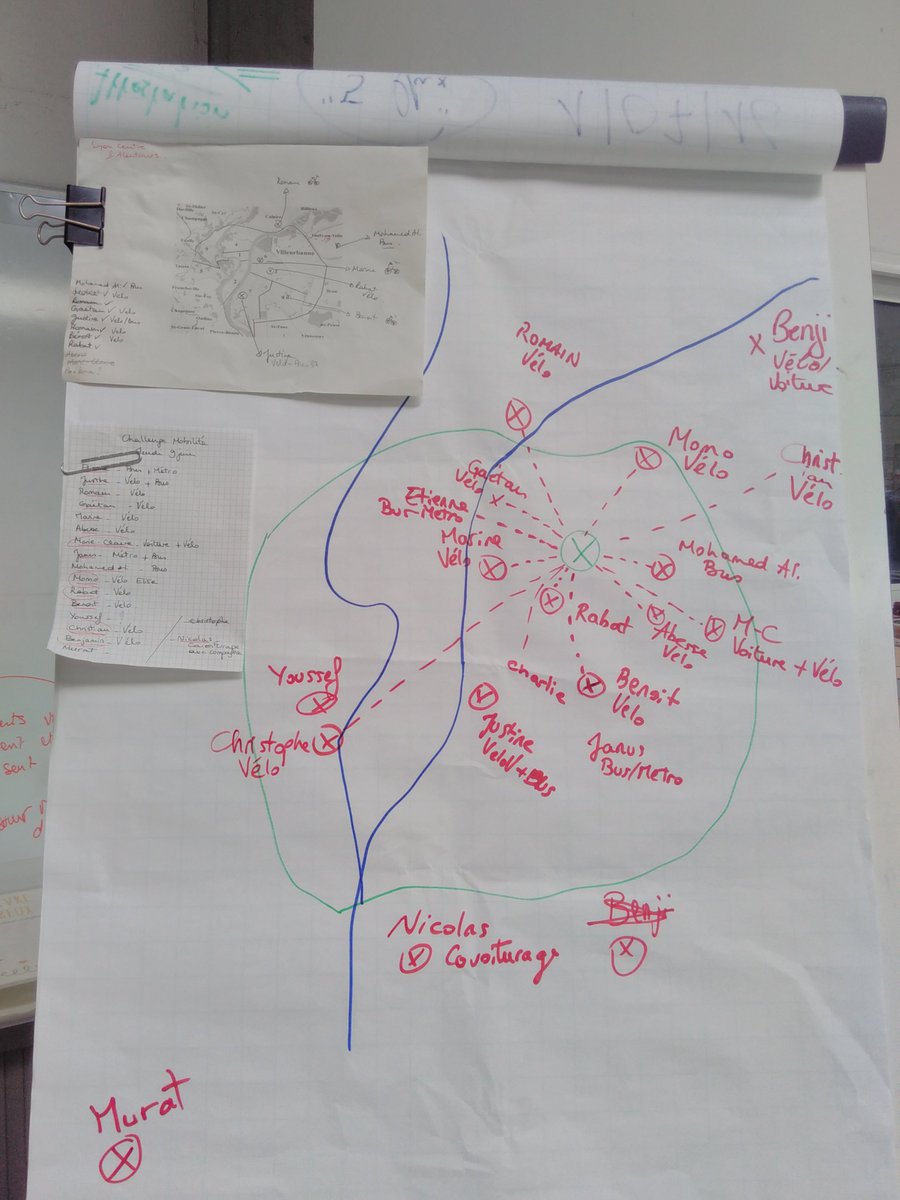 Attestation
Lyon Centre
& Alentours
Romain
Mohamed Al.
Bus
Villeurbanne
Marine
Rabat
Vélo
Benoit
Justine
Mohamed Al. ✓ Bus
Romain ✓
Gaëtan ✓ Vélo
Justine ✓ Vélo/bus
Romain ✓ Vélo
Benoit ✓ Vélo
Rabat ✓
Challenge Mobilité
Jeudi 9 juin
Etienne - Bus + Métro
Justine - Vélo + Bus
Romain - Vélo
Gaëtan - Vélo
Marine - Vélo
Abesse - Vélo
Marie-Claire - Voiture + Vélo
Janus - Métro + Bus
Mohamed Al. - Bus
Momo - Vélo
Rabat - Vélo
Benoit - Vélo
Youssef - ?
Christian - Vélo
Benjamin - Vélo
Murat
Christophe
Nicolas
Covoiturage
avec compagne
ROMAIN
Vélo
Benji
Vélo/
Voiture
Momo
Vélo
Christ-
ian
Vélo
Gaëtan
Vélo
Etienne
Bus-Métro
Marine
Vélo
Mohamed Al.
Bus
Rabat
Abesse
Vélo
M-C
Voiture + Vélo
charlie
Benoit
Vélo
Youssef
Christophe
Vélo
Justine
Velov + Bus
Janus
Bus/Metro
Nicolas
Covoiturage
Benji
Murat